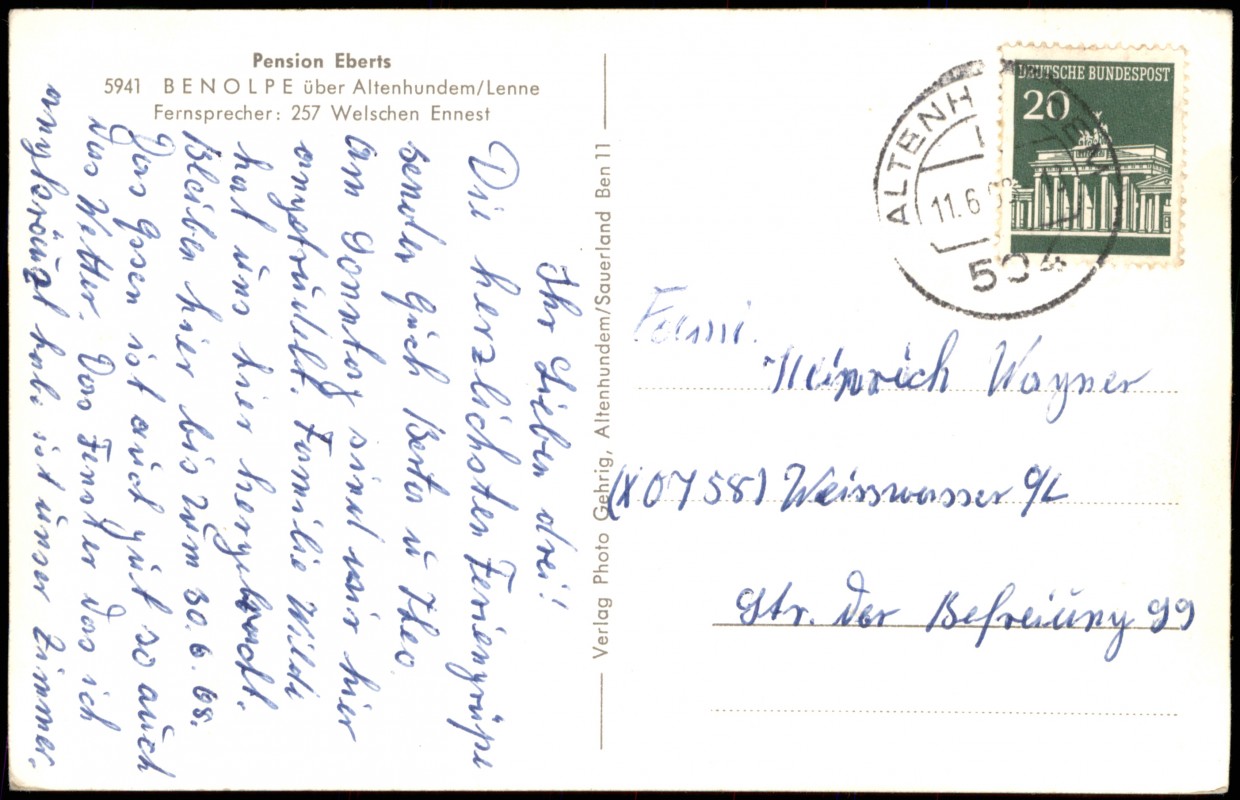 Pension Eberts
5941 BENOLPE über Altenhundem/Lenne
Fernsprecher: 257 Welschen Ennest
Ihr Lieben drei!
Die herzlichsten Feriengrüße
senden Euch Berta u Theo.
Am Sonntag sind wir hier
angetrudelt. Familie Mildt
hat uns hier hergebracht.
Bleiben hier bis zum 30. 6. 68.
Das Essen ist auch gut so auch
das Wetter. Das Fenster das ich
angekreuzt habe ist unser Zimmer.
Verlag Photo Gehrig, Altenhundem/Sauerland Ben 11
DEUTSCHE BUNDESPOST
20
ALTENH EM
11.6.68
594
Fami.
Heinrich Wagner
(X 0758) Weisswasser O/L
Str. der Befreiung 99